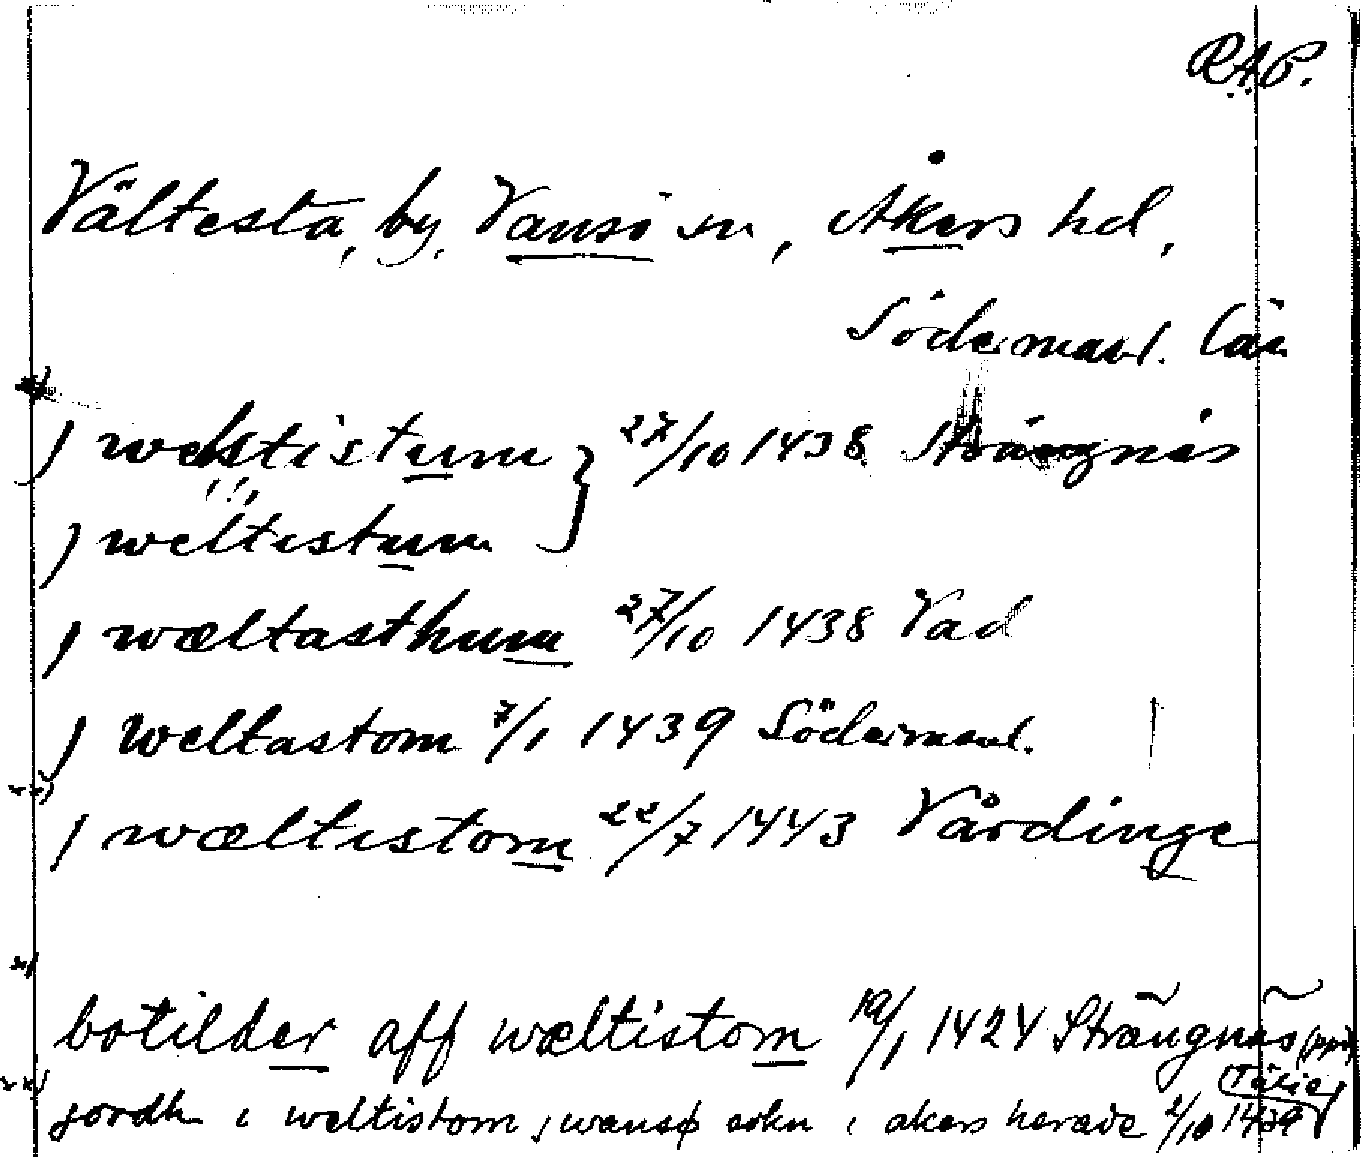 R.A.P.
Vältesta, by, Vansö sn, Åkers hd,
Södermanl. län
x)
j weltistum } 27/10 1438 Strängnäs
j weltistum
j wæltasthum 27/10 1438 Vad
j weltastom 7/1 1439 Södermanl.
xx)
j wæltistom 22/7 1443 Vårdinge
x)
botilder aff wæltistom 19/1 1424 Strängnäs (ppr)
xx)
jordh i weltistom j wansø sokn i akers herade 2/10 1439 Tälje